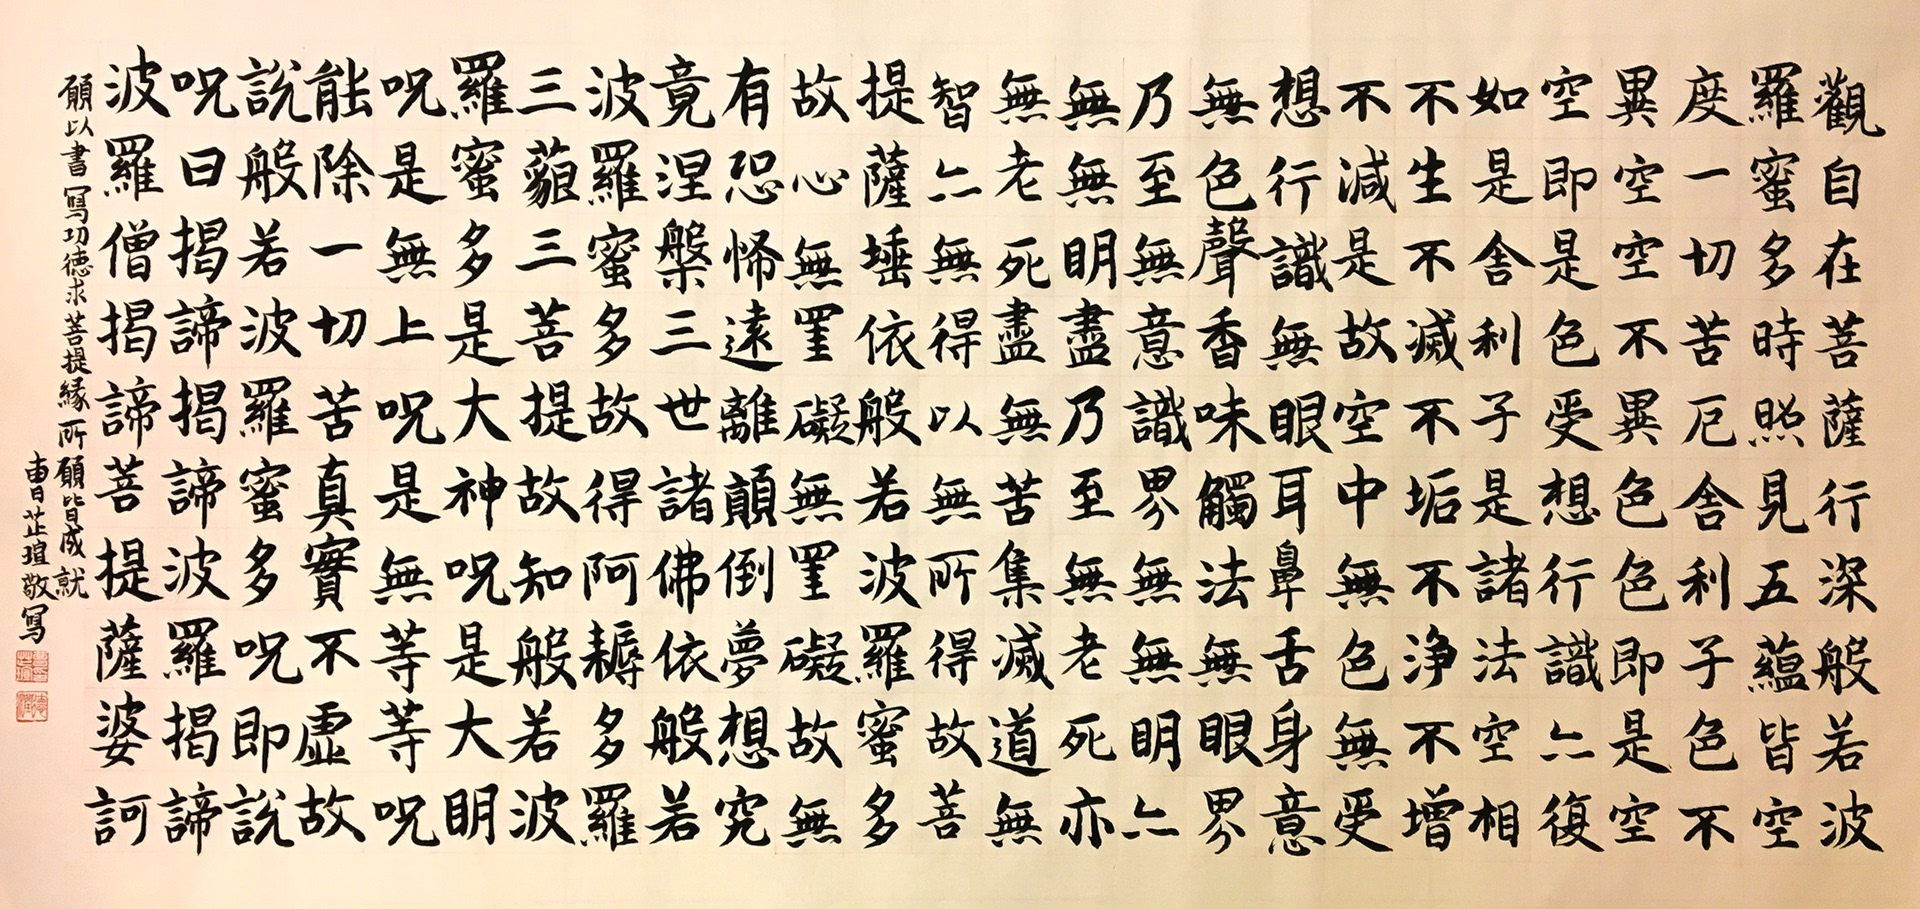 觀自在菩薩行深般若波
羅蜜多時照見五蘊皆空
度一切苦厄舍利子色不
異空空不異色色即是空
空即是色受想行識亦復
如是舍利子是諸法空相
不生不滅不垢不淨不增
不減是故空中無色無受
想行識無眼耳鼻舌身意
無色聲香味觸法無眼界
乃至無意識界無無明亦
無無明盡乃至無老死亦
無老死盡無苦集滅道無
智亦無得以無所得故菩
提薩埵依般若波羅蜜多
故心無罣礙無罣礙故無
有恐怖遠離顛倒夢想究
竟涅槃三世諸佛依般若
波羅蜜多故得阿耨多羅
三藐三菩提故知般若波
羅蜜多是大神呪是大明
呪是無上呪是無等等呪
能除一切苦真實不虛故
說般若波羅蜜多呪即說
呪曰揭諦揭諦波羅揭諦
波羅僧揭諦菩提薩婆訶
願以書寫功德求菩提緣所願皆成就
曹芷瑄敬寫